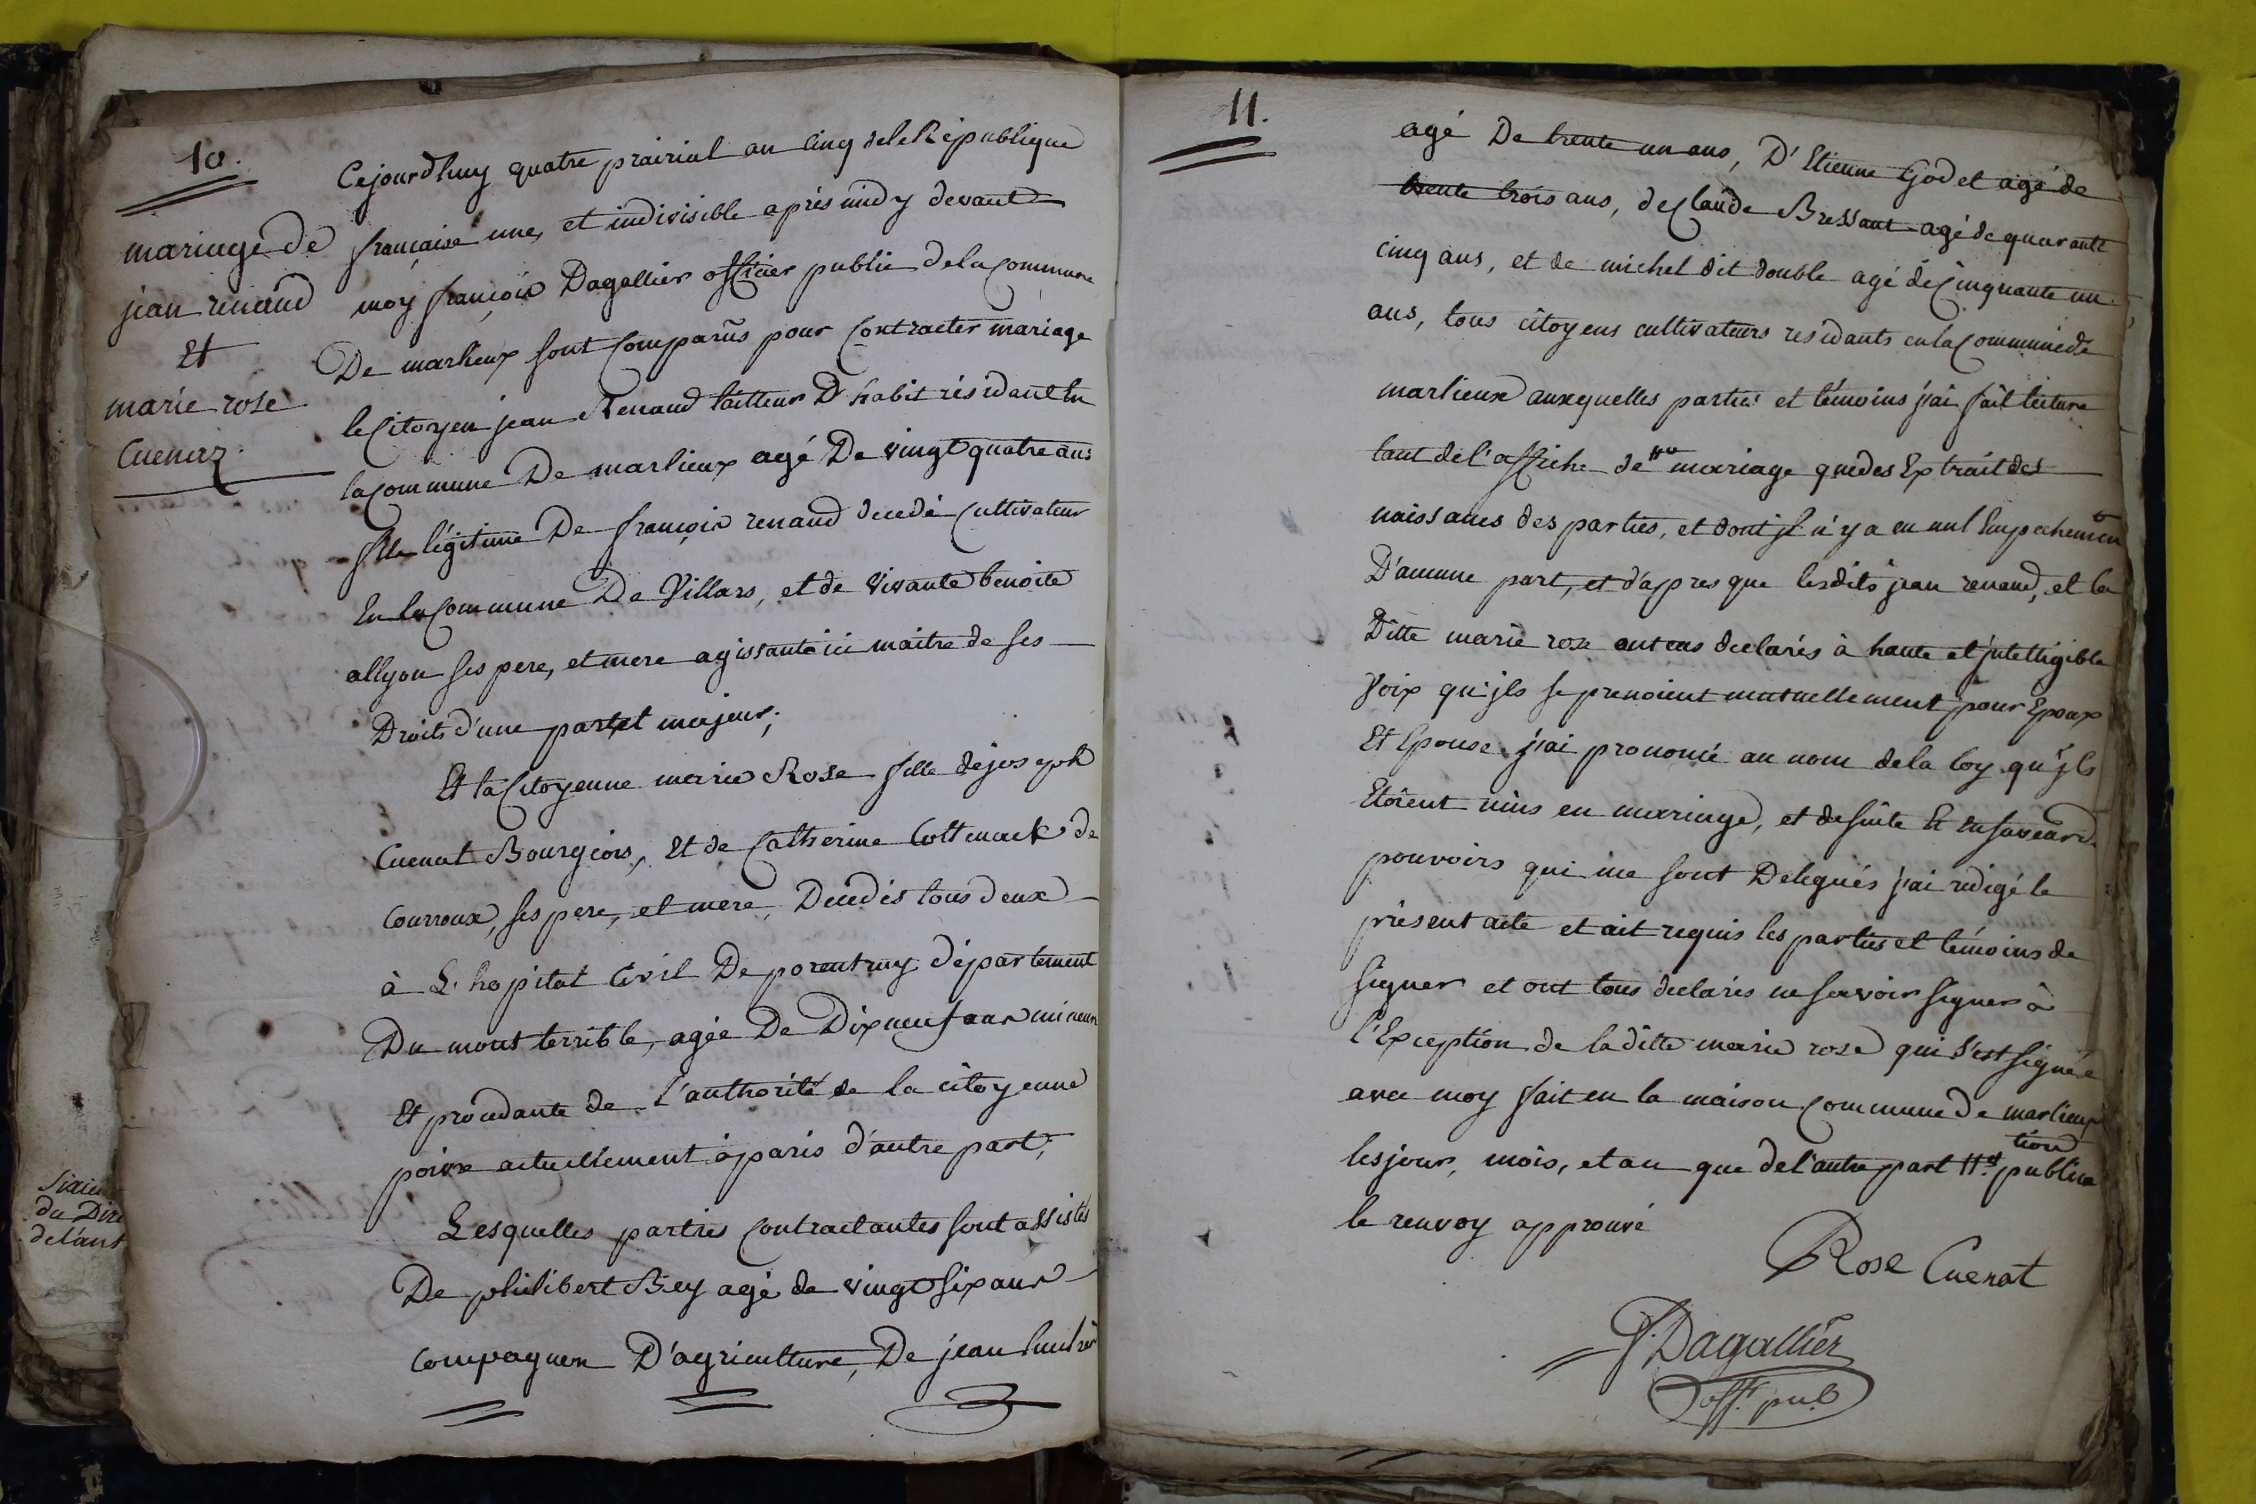 10.
mariage de
jean renaud
Et
marie rose
Cuenaz.
Cejourdhuy quatre prairial an cinq dela République
française une, et indivisible après midy devant
moy françois Dagallier officier public dela commune
De marlieux sont comparus pour contracter mariage
le citoyen jean Renaud tailleur D'habit résidant En
la commune De marlieux agé De vingt quatre ans
fils légitime De françois renaud decedé cultivateur
En la commune De Villars, et de vivante benoite
allyon ses pere, et mere agissant ici maitre de ses
Droits d'une part et majeur;
Et la Citoyenne marie Rose fille de joseph
Cuenat Bourgeois, Et de Catherine Cottenack de
Courroux, ses pere, et mere, Decedés tous deux
à L'hopital Civil De porentruy département
Du mont terrible, agée De Dix neuf ans mineure
Et procedante de l'authorité de la citoyenne
poivre actuellement à paris d'autre part;
Lesquelles parties contractantes sont assistés
De philibert Bey agé de vingt six ans
compagnon D'agriculture, De jean
sixiem
du Dire
delant
11.
agé De trente un ans, D'Etienne Godet agé de
trente trois ans, de Claude Bressant agé de quarante
cinq ans, et de michel dit double agé de cinquante un
ans, tous citoyens cultivateurs residants en la commune de
marlieux auxquelles parties et témoins j'ai fait lecture
tant de l'affiche de H mariage que des Extrait des
naissances des parties, et dont il n'y a eu nul Empechement
D'aucune part, et d'apres que lesdits jean renaud, et la
Ditte marie rose ont eus declarés à haute et jntelligible
voix qu'jls se prenoient mutuellement pour Epoux
Et Epouse j'ai prononcé au nom dela loy qu'jls
Etoient unis en mariage, et de suite Et en faveur des
pouvoirs qui me sont Delegués j'ai redigé le
présent acte et ait requis les parties et témoins de
signer et ont tous declarés ne scavoir signer à
l'Exception de laditte marie rose qui s'est signée
avec moy fait en la maison commune de marlieux
les jour, mois, et an que de l'autre part H publica
tion
le renvoy approuvé
Rose Cuenat
f. Dagallier
off. pub